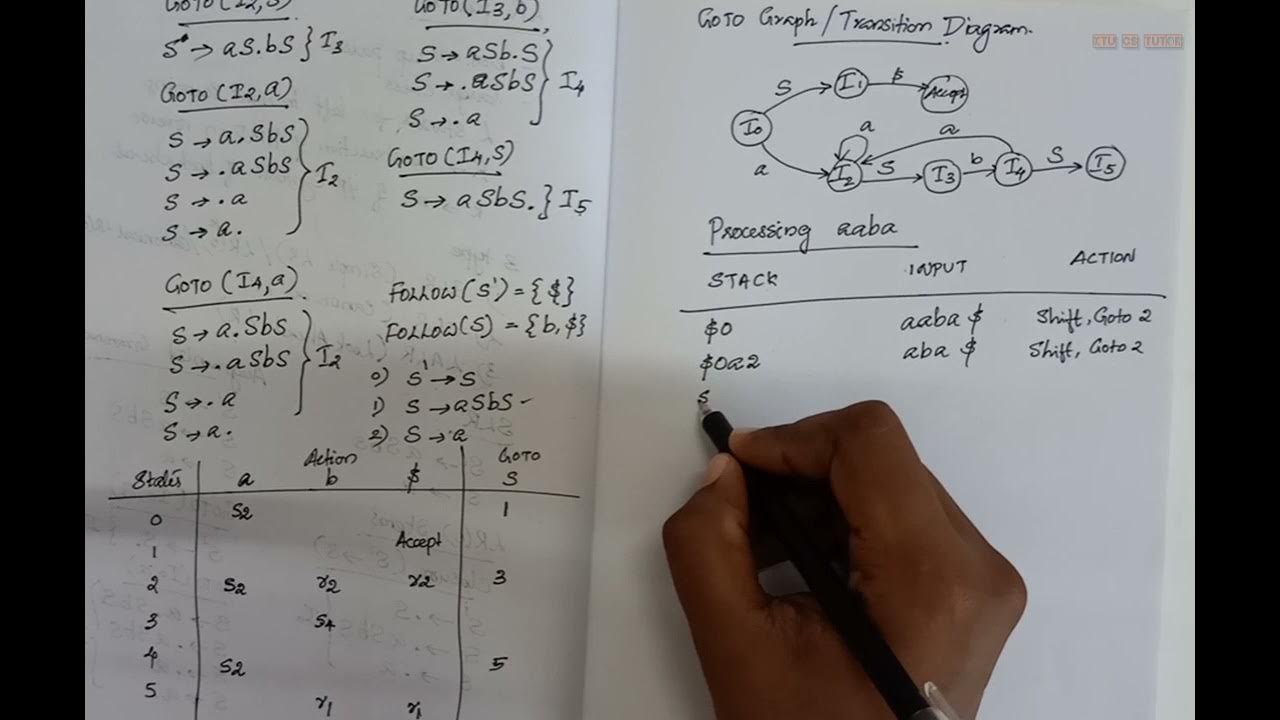 GOTO(I2,S)
S → aS.bS } I3
GOTO(I2,a)
S → a.SbS
S → .aSbS
S → .a
S → a.
} I2
GOTO(I4,a)
S → a.SbS
S → .aSbS
S → .a
S → a.
} I2
GOTO(I3,b)
S → aSb.S
S → .aSbS
S → .a
} I4
GOTO(I4,S)
S → aSbS. } I5
FOLLOW(S') = {$}
FOLLOW(S) = {b,$}
0) S' → S
1) S → aSbS
2) S → a
Action GOTO
States a b $ S
0 S2 1
1 Accept
2 S2 r2 r2 3
3 S4
4 S2 5
5 r1 r1
GOTO Graph / Transition Diagram.
KTU CS TUTOR
S I1 $ Accept
I0
a I2 a S I3 b I4 a S I5
Processing aaba
STACK INPUT ACTION
$0 aaba $ Shift, Goto 2
$0a2 aba $ Shift, Goto 2